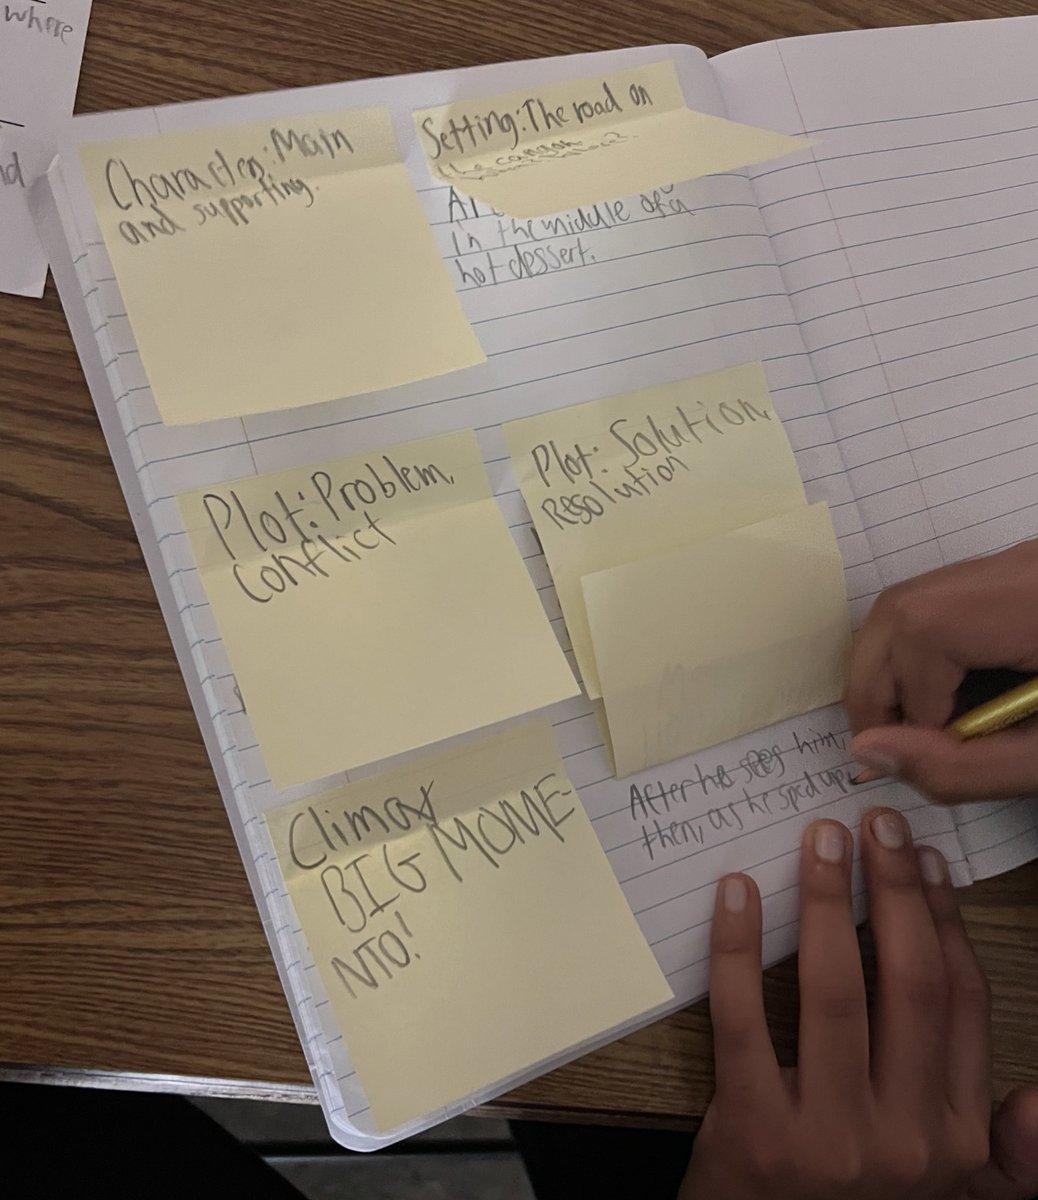 where
nd
Character: Main
and supporting.
Setting: The road on
the canyon
in the middle of a
hot dessert.
Plot: Problem,
Conflict
Plot: Solution,
Resolution
Climax
BIG MOME-
NTO!
After he sees him,
then, as he sped up